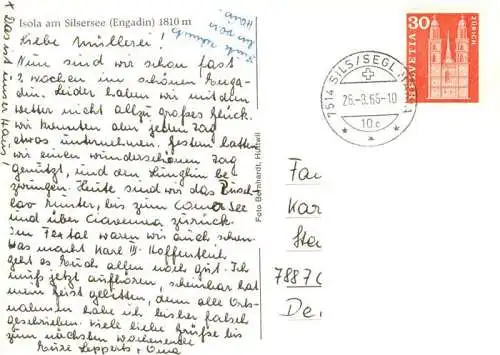 Isola am Silsersee (Engadin) 1810 m
* Das ist unser Haus!
Liebe Müllerei!
Nun sind wir schon fast
2 Wochen im schönen Enga-
din. Leider haben wir mit dem
Wetter nicht allzu großes Glück.
Wir konnten aber jeden Tag
etwas unternehmen. Gestern hatten
wir einen wunderschönen Tag
genützt, und den Lunghin be
zwungen. Heute sind wir das Pusch
lav runter, bis zum Comer See
und über Ciavenna zurück.
Im Fextal waren wir auch schon.
Was macht Karl III. Hoffentlich
geht es Euch allen noch gut. Ich
muß jetzt aufhören, scheinbar hat
mein Geist gelitten, denn alle Orts-
namen habe ich bisher falsch
geschrieben. Viele liebe Grüße bis
zum nächsten Wochenende
Eure Lepperts + Oma
Foto Bernhardt, Huttwil
7514 SILS/SEGL MARIA
26.-9.65-10
10c
30
HELVETIA
ZÜRICH
Fa
Kar
Sta
7887
De